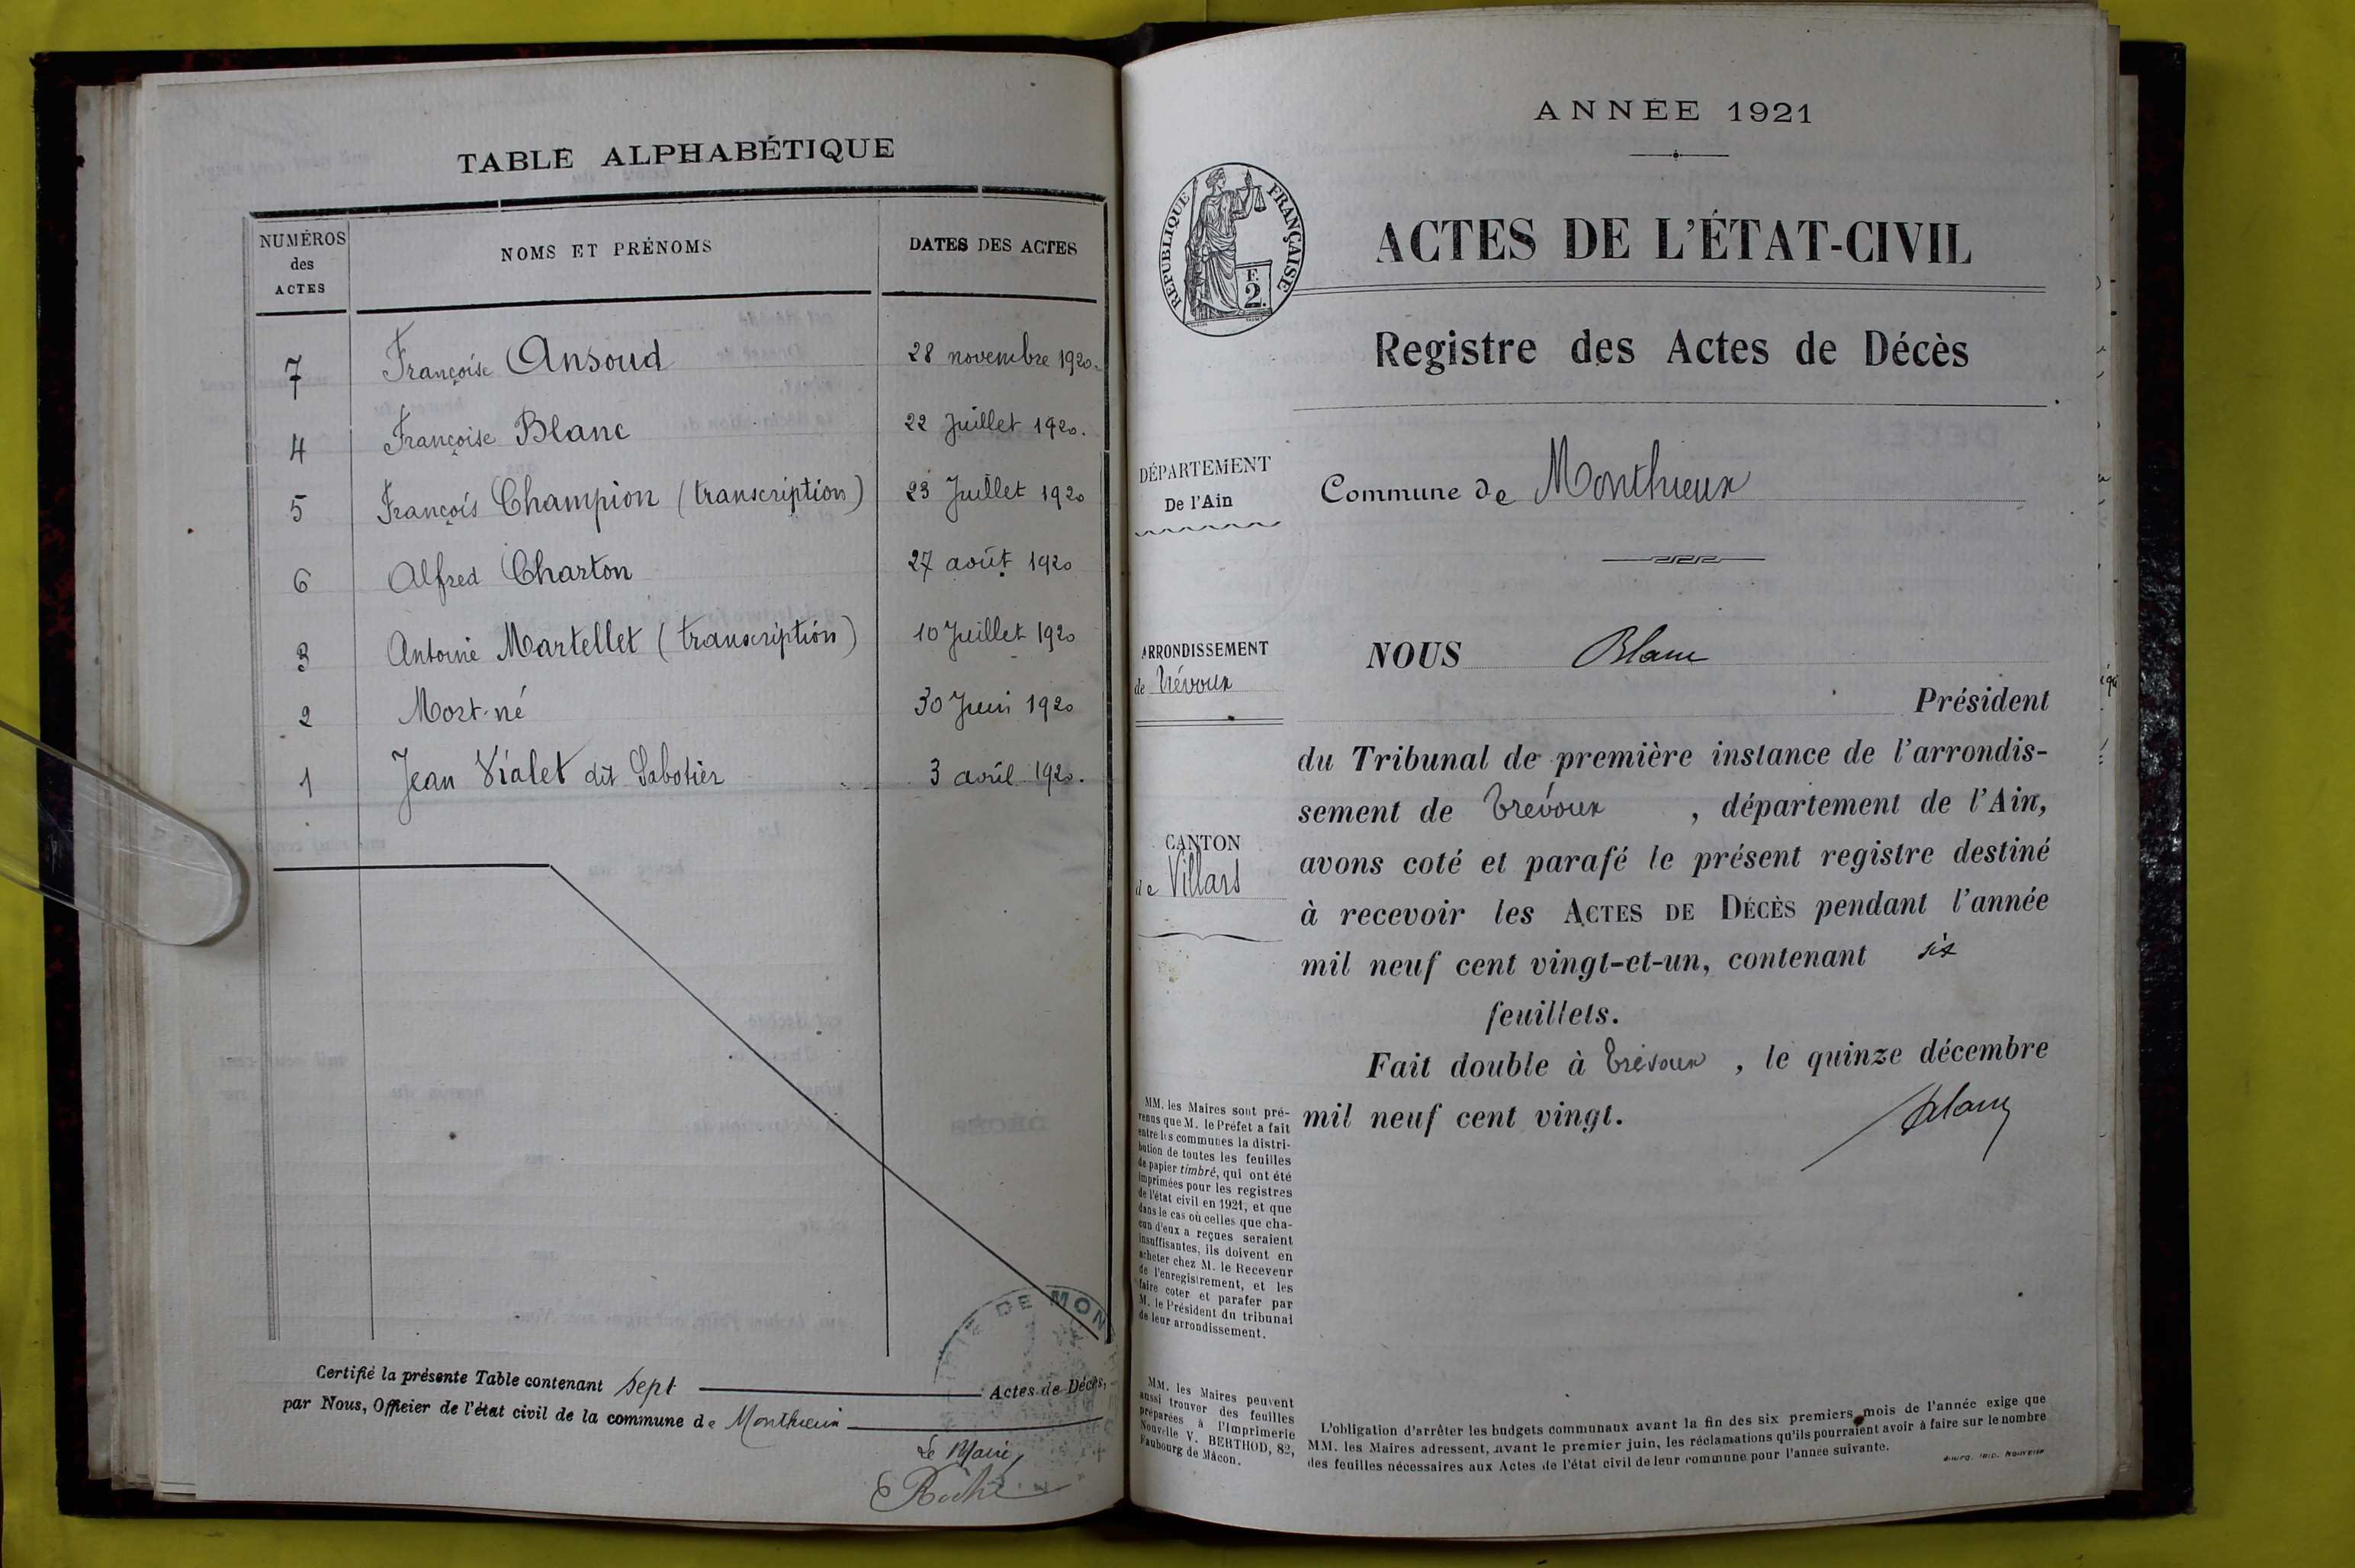 TABLE ALPHABÉTIQUE
NUMÉROS des ACTES NOMS ET PRÉNOMS DATES DES ACTES
7 Françoise Ansoud 28 novembre 1920.
4 Françoise Blanc 22 Juillet 1920.
5 François Champion (transcription) 23 Juillet 1920
6 Alfred Charton 27 août 1920
3 Antoine Martellet (transcription) 10 Juillet 1920
2 Mort-né 30 Juin 1920
1 Jean Vialet dit Sabotier 3 avril 1920.
Certifié la présente Table contenant sept Actes de Décès,
par Nous, Officier de l'état civil de la commune de Monthieux
Le Maire,
DE MON
ANNÉE 1921
RÉPUBLIQUE FRANÇAISE
E.
2.
ACTES DE L'ÉTAT-CIVIL
Registre des Actes de Décès
DÉPARTEMENT
De l'Ain
Commune de Monthieux
ARRONDISSEMENT
de Trévoux
CANTON
de Villars
NOUS Blanc
Président
du Tribunal de première instance de l'arrondis-
sement de Trévoux , département de l'Ain,
avons coté et parafé le présent registre destiné
à recevoir les ACTES DE DÉCÈS pendant l'année
mil neuf cent vingt-et-un, contenant six
feuillets.
Fait double à Trévoux , le quinze décembre
mil neuf cent vingt.
Blanc
MM. les Maires sont pré-
venus que M. le Préfet a fait
entre les communes la distri-
bution de toutes les feuilles
de papier timbré, qui ont été
imprimées pour les registres
de l'état civil en 1921, et que
dans le cas où celles que cha-
cun d'eux a reçues seraient
insuffisantes, ils doivent en
acheter chez M. le Receveur
de l'enregistrement, et les
faire coter et parafer par
M. le Président du tribunal
de leur arrondissement.
MM. les Maires peuvent
aussi trouver des feuilles
préparées à l'Imprimerie
Nouvelle V. BERTHOD, 82,
Faubourg de Mâcon.
L'obligation d'arrêter les budgets communaux avant la fin des six premiers mois de l'année exige que
MM. les Maires adressent, avant le premier juin, les réclamations qu'ils pourraient avoir à faire sur le nombre
des feuilles nécessaires aux Actes de l'état civil de leur commune pour l'année suivante.
BOURG. IMP. NOUVELLE